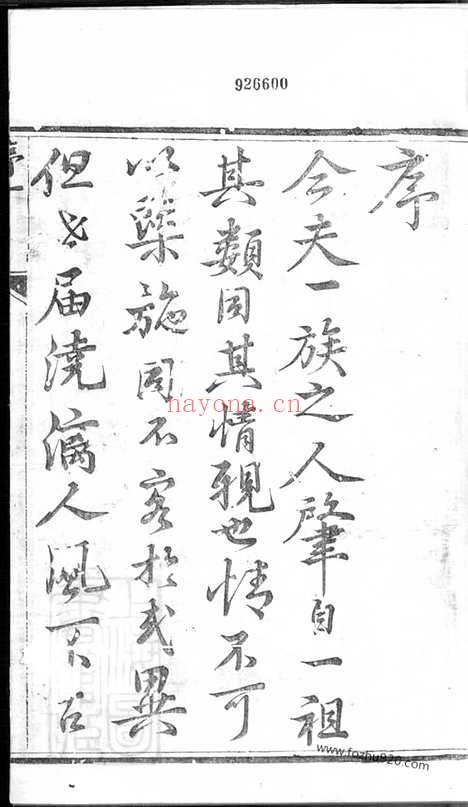 926600
序
今夫一族之人肇自一祖
其類同其情親也情不可
以槩施固不容於或異
但世届澆漓人風不古
hayona.cn
www.fozhu920.com